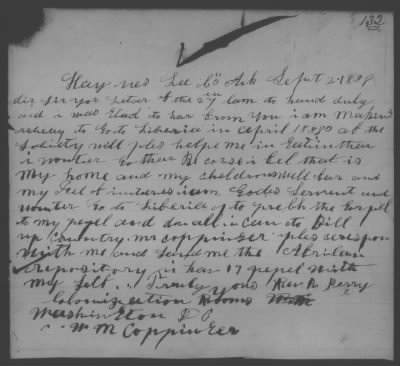 132
Haynes Lee Co Ark Sept 2 1889
dir Sir yor Letter of the 27 cam to hand duly
and i was Glad to har from you i am Making
redday to Go to Liberia in April 18890 ef the
Society will ples helpe me in Getting thar
i wonter Go thar Becorse i feel that is
My home and my
my feel of intures i am Godes Servent and
wonter Go to Liberia to preth the Gospel
to my pepel and do all i can to Bill
up Country. mr coppinger ples corispon
With me and Send me the African
repository i har 17 pepel With
my Self. Truly yours Rev R Perry
Colonization Rooms
Washington D C
W M Coppinger